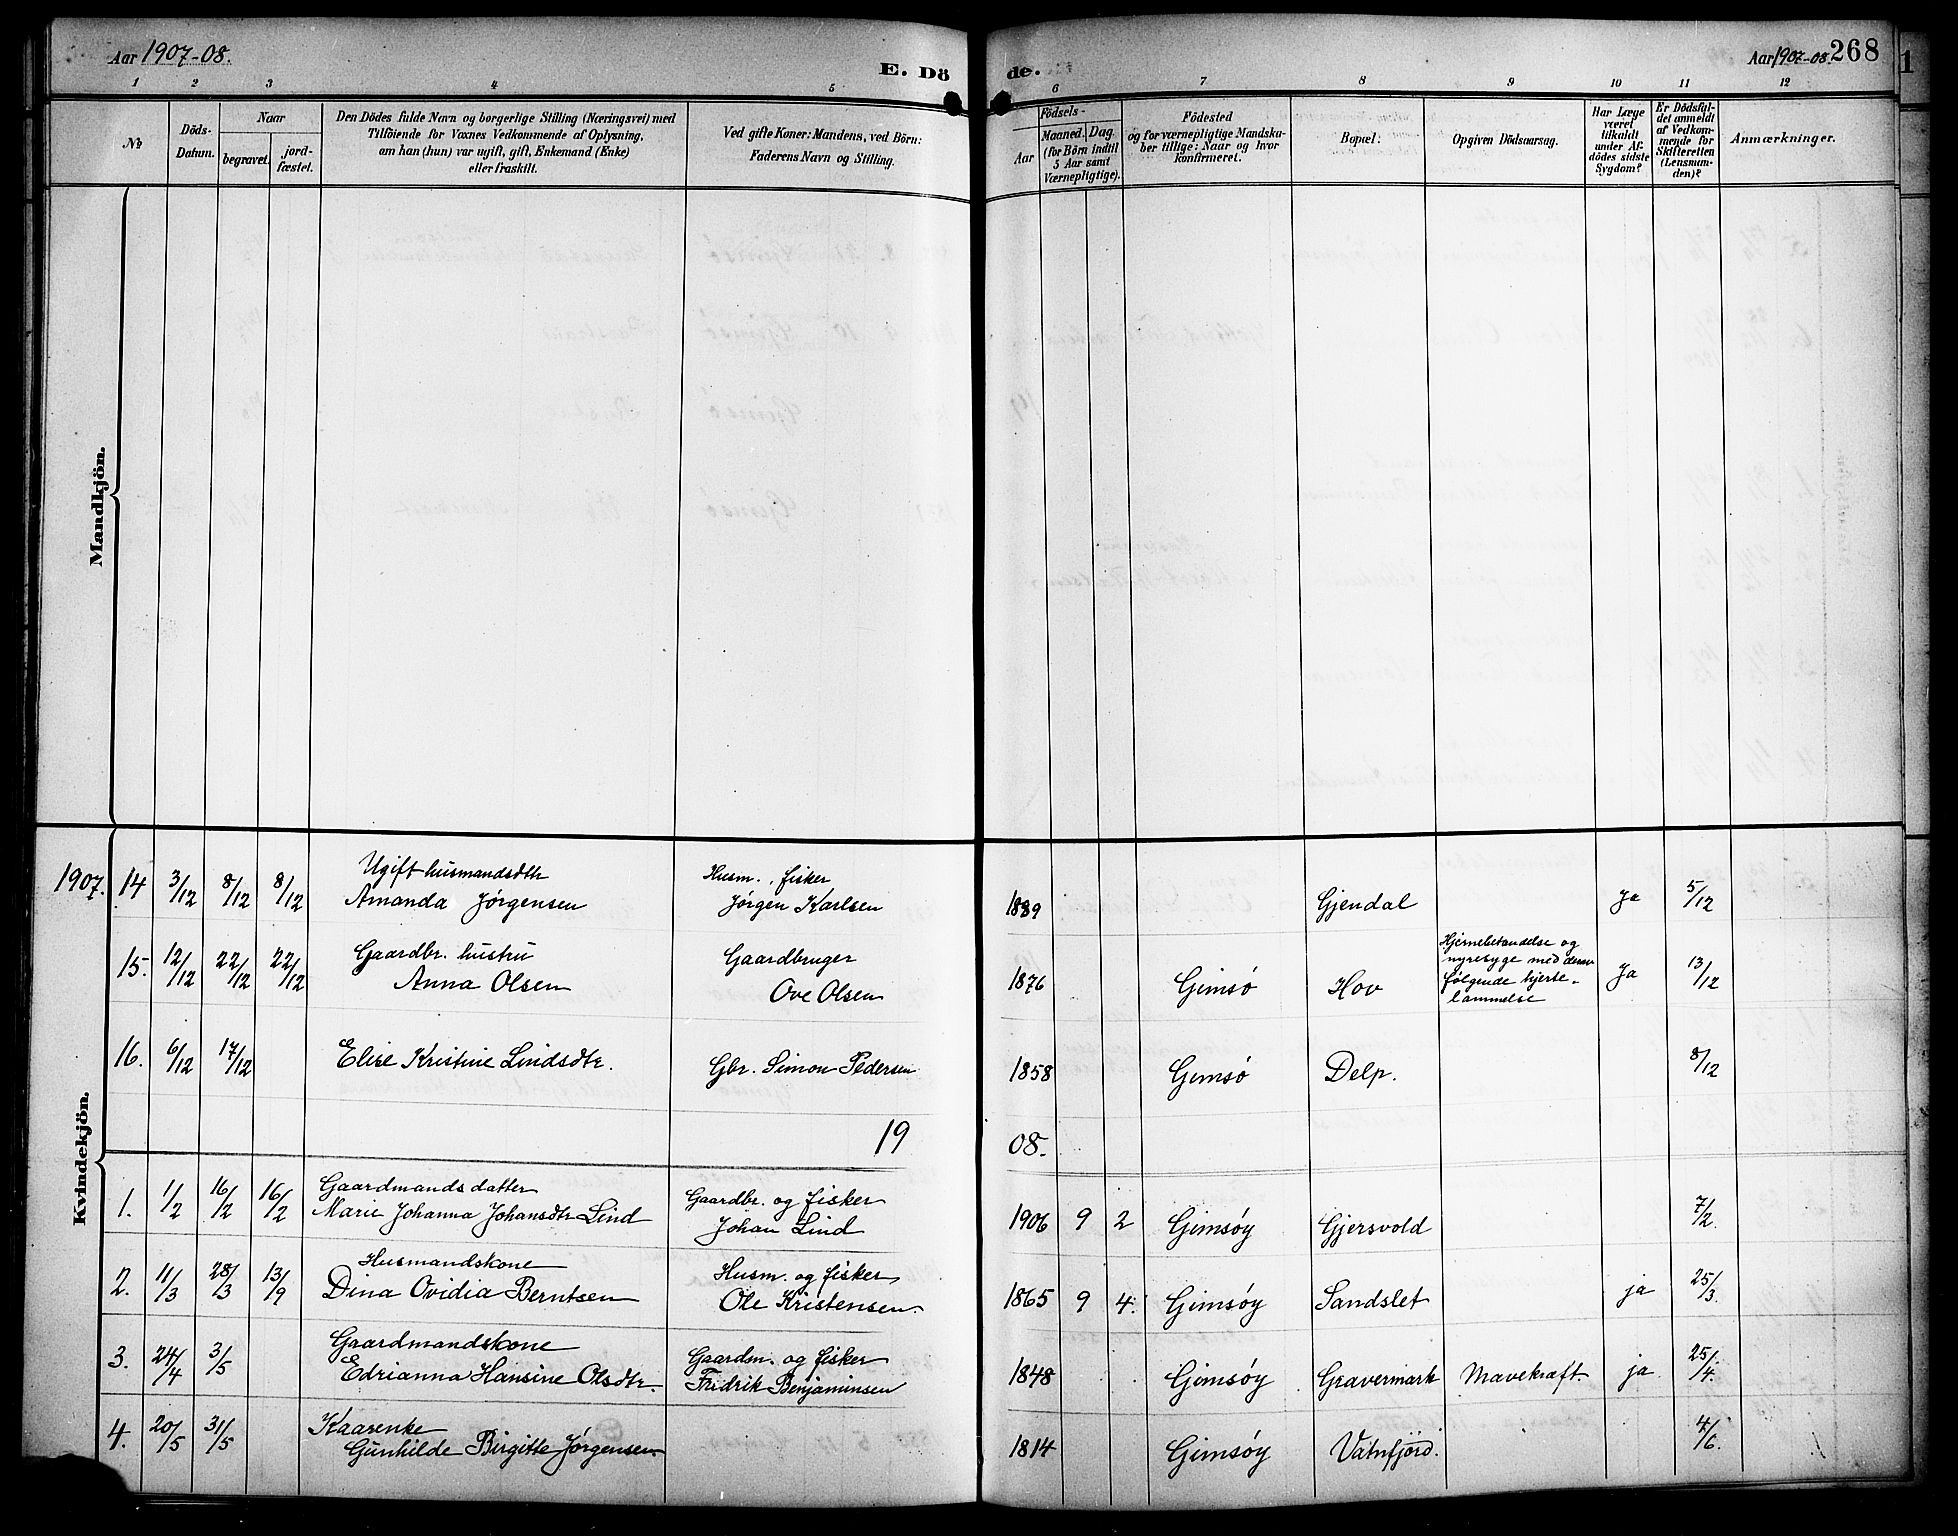 Aar 1907-08.
E. Dö
de.
Aar 1907-08. 268
1 2 3 4 5 6 7 8 9 10 11 12
№
Döds-
Datum.
Naar
begravet.
jord-
fæstet.
Den Dödes fulde Navn og borgerlige Stilling (Næringsvei) med
Tilföiende for Voxnes Vedkommende af Oplysning,
om han (hun) var ugift, gift, Enkemand (Enke)
eller fraskilt.
Ved gifte Koner: Mandens, ved Börn:
Faderens Navn og Stilling.
Födsels-
Aar
Maaned. Dag.
(for Börn indtil
5 Aar samt
Værnepligtige).
Födested
og for værnepligtige Mandska-
ber tillige: Naar og hvor
konfirmeret.
Bopæl.
Opgiven Dödsaarsag.
Har Læge
været
tilkaldt
under Af-
dödes sidste
Sygdom?
Er Dödsfal-
det anmeldt
af Vedkom-
mende for
Skifteretten
(Lensman-
den)?
Anmærkninger.
Mandkjön.
Kvindekjön.
1907. 14 3/12 8/12 8/12 Ugift husmandsdtr
Amanda Jørgensen
Husm., fisker
Jørgen Karlsen
1889 Gjendal Ja 5/12
15. 12/12 22/12 22/12 Gaardbr. hustru
Anna Olsen
Gaardbruger
Ove Olsen
1876 Gimsø Hov
Hjernebetændelse og
nyresyge med
følgende hjerte-
lammelse
Ja 13/12
16. 6/12 17/12 Elise Kristine Lindsdtr. Gbr. Simon Pedersen
1858 Gimsø Delp. 8/12
19 08.
1. 1/2 16/2 16/2 Gaardmandsdatter
Marie Johanna Johansdtr Lind
Gaardbr. og fisker
Johan Lind
1906 9 2 Gimsøy Gjersvold 7/2.
2. 11/3 28/3 13/9 Husmandskone
Dina Ovidia Berntsen
Husm. og fisker
Ole Kristensen
1865 9 4. Gimsøy Sandslet ja 25/3.
3. 24/4 3/5 Gaardmandskone
Edrianna Hansine Olsdtr.
Gaardm. og fisker
Fridrik Benjaminsen
1848 Gimsøy Gravermark Mavekræft ja 25/4.
4. 20/5 31/5 Kaarenke
Gunhilde Birgitte Jørgensen
1814 Gimsøy Vatnfjord. 4/6.